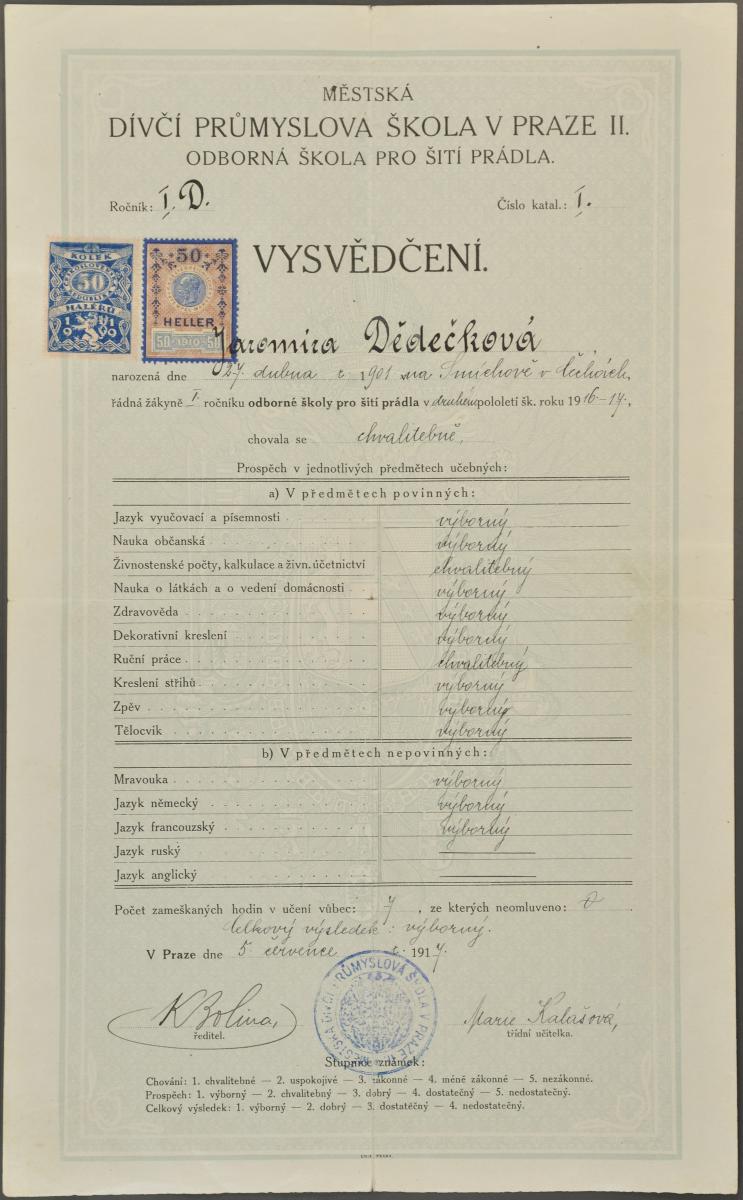 MĚSTSKÁ
DÍVČÍ PRŮMYSLOVA ŠKOLA V PRAZE II.
ODBORNÁ ŠKOLA PRO ŠITÍ PRÁDLA.
Ročník: I. D. Číslo katal.: I.
KOLEK
ČESKOSLOVENSKÁ
50
REPUBLIKA
HALÉŘŮ
1919
50
HELLER
50 1910 50
VYSVĚDČENÍ.
Jaromíra Dědečková
narozená dne 27. dubna r. 1901 na Smíchově v Čechách,
řádná žákyně I. ročníku odborné školy pro šití prádla v druhém pololetí šk. roku 1916-17,
chovala se chvalitebně.
Prospěch v jednotlivých předmětech učebných:
a) V předmětech povinných:
Jazyk vyučovací a písemnosti výborný
Nauka občanská výborný
Živnostenské počty, kalkulace a živn. účetnictví chvalitebný
Nauka o látkách a o vedení domácnosti výborný
Zdravověda výborný
Dekorativní kreslení výborný
Ruční práce chvalitebný
Kreslení střihů výborný
Zpěv výborný
Tělocvik výborný
b) V předmětech nepovinných:
Mravouka výborný
Jazyk německý výborný
Jazyk francouzský výborný
Jazyk ruský
Jazyk anglický
Počet zameškaných hodin v učení vůbec: 7, ze kterých neomluveno: 0.
Celkový výsledek: výborný.
V Praze dne 5. července r. 1917.
MĚSTSKÁ DÍVČÍ PRŮMYSLOVÁ ŠKOLA V PRAZE
K Bolina, Marie Kalašová,
ředitel. třídní učitelka.
Stupnice známek:
Chování: 1. chvalitebné — 2. uspokojivé — 3. zákonné — 4. méně zákonné — 5. nezákonné.
Prospěch: 1. výborný — 2. chvalitebný — 3. dobrý — 4. dostatečný — 5. nedostatečný.
Celkový výsledek: 1. výborný — 2. dobrý — 3. dostatěčný — 4. nedostatečný.